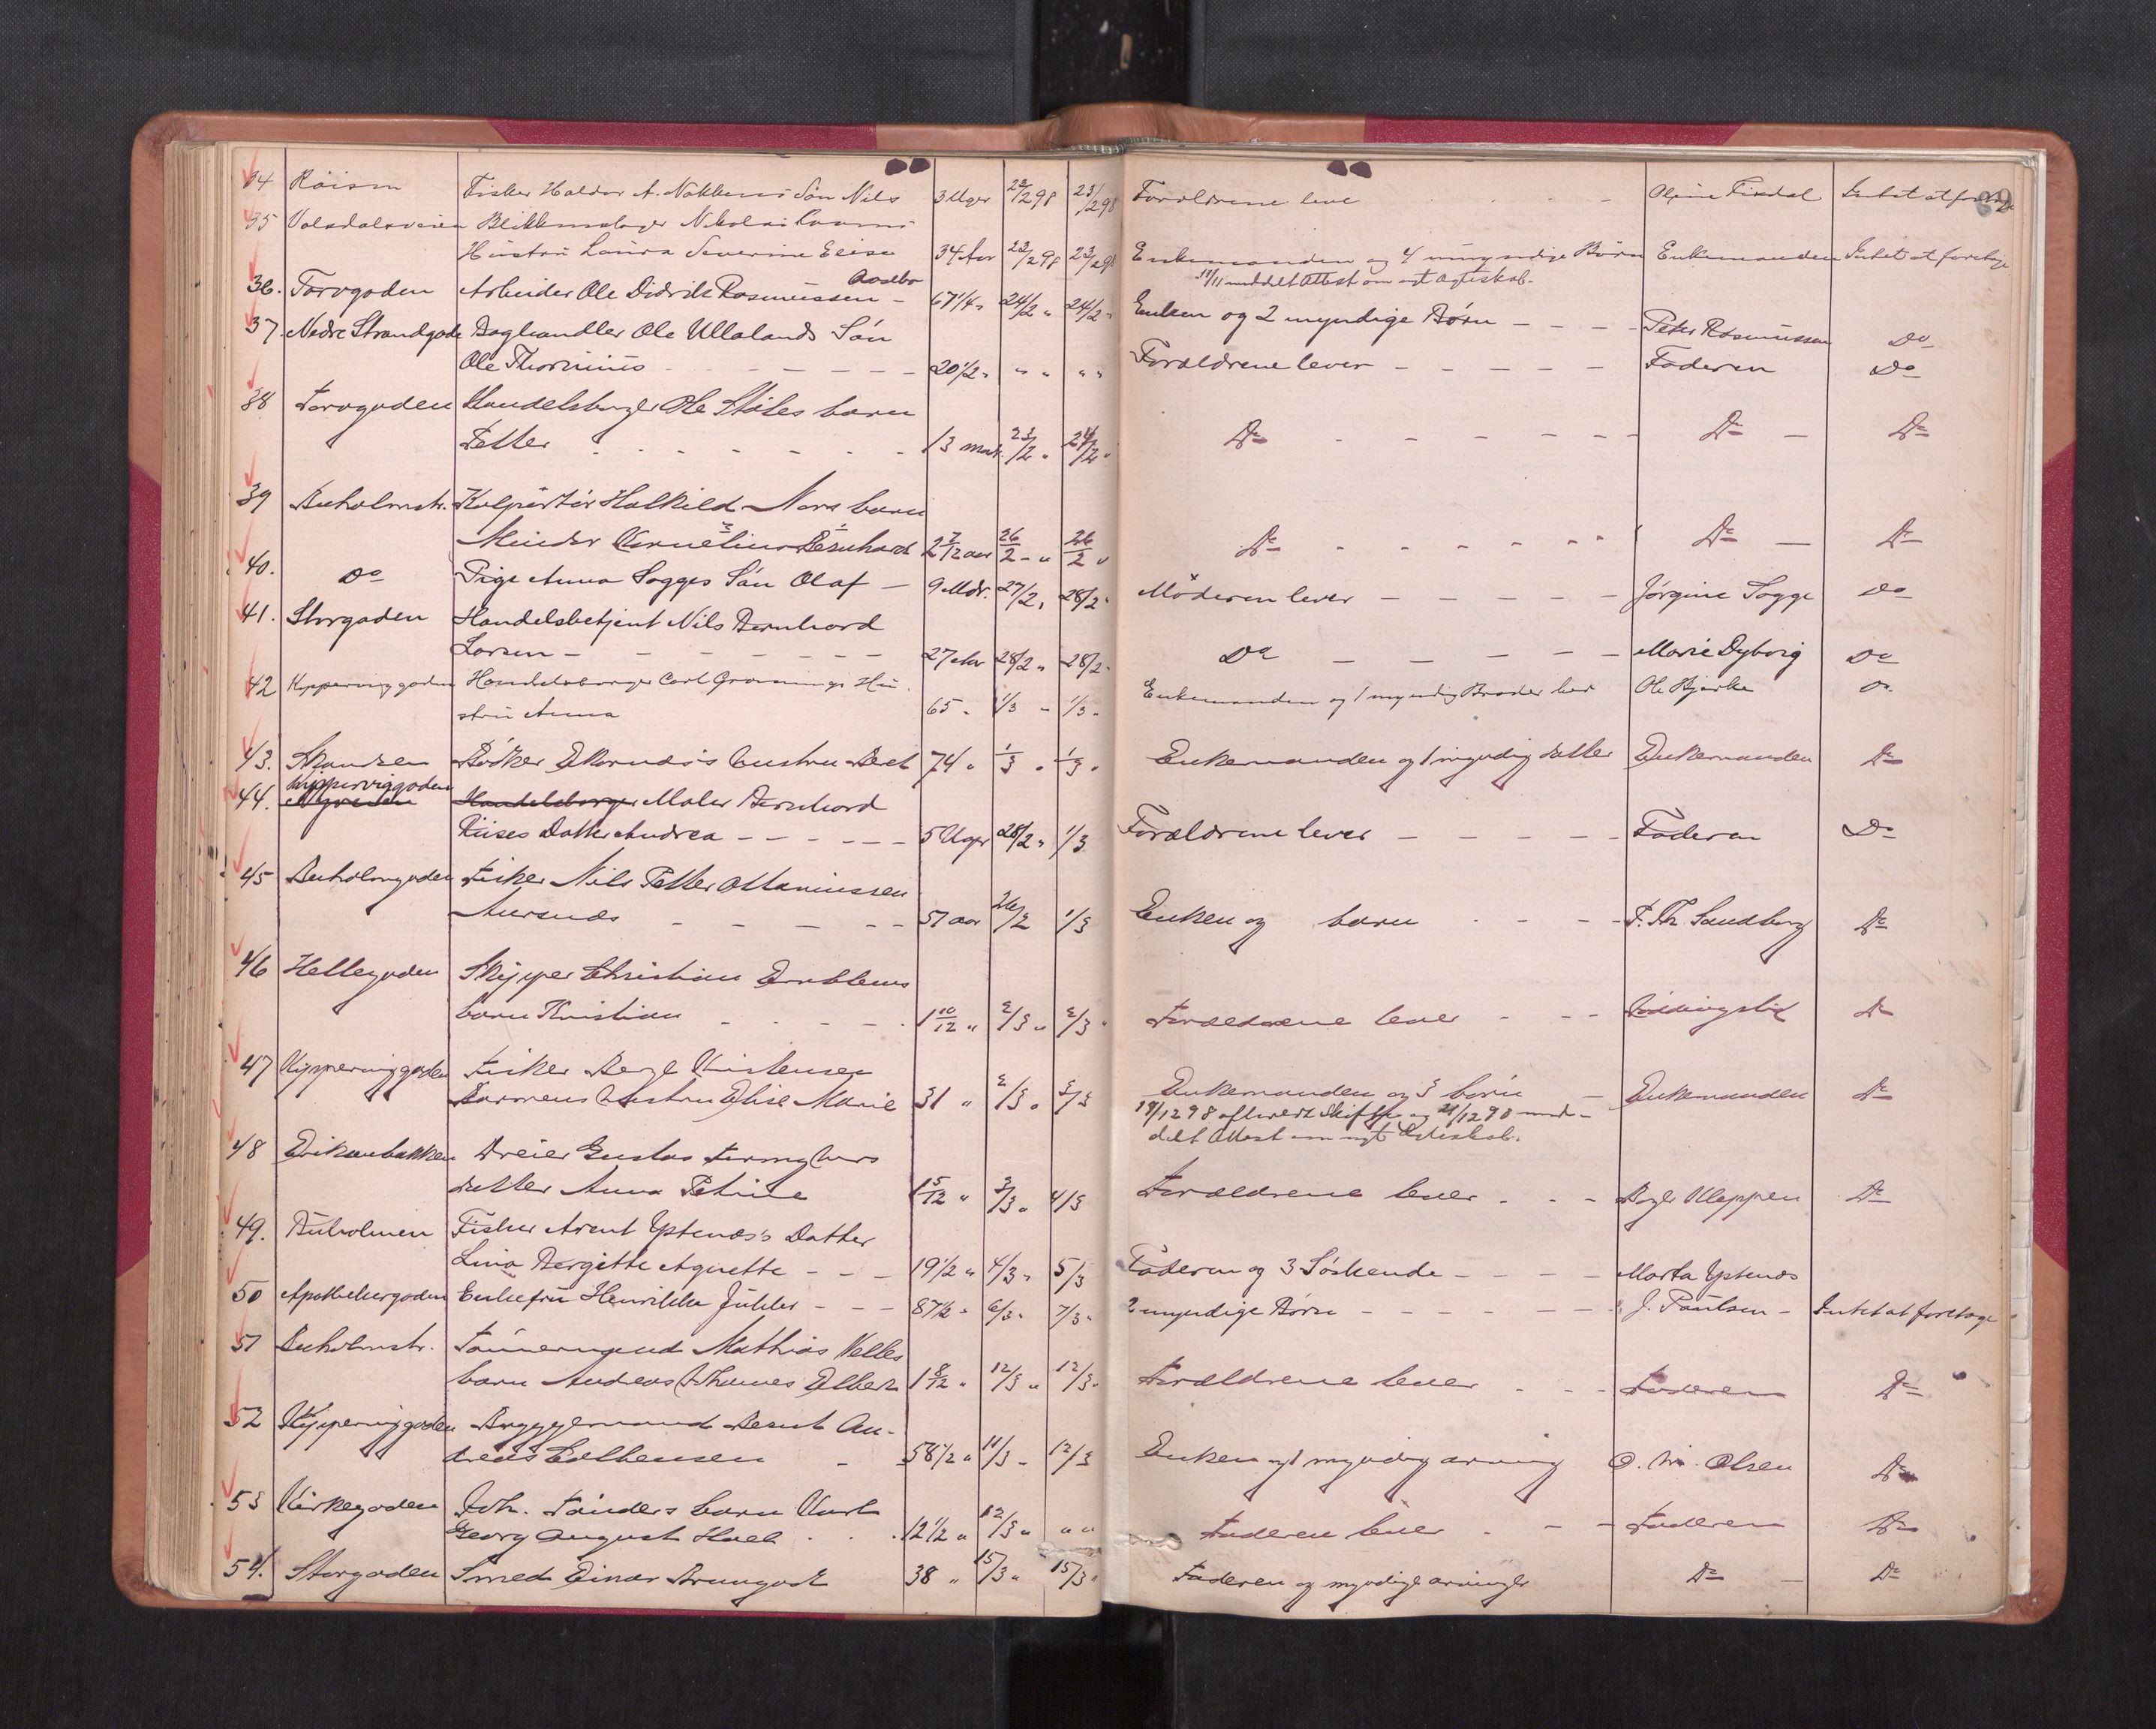 34 Røisen Fisker Haldor A. Nakkens Søn Nils 3 Uger 23/2 98 23/2 98 Forældrene leve Intet at foretage
35 Volsdalsveien Blikkenslager Nikolai
Hustru Laura Severine Elise 34 Aar 23/2 98 23/2 98 Enkemanden og 4 umyndige Børn Enkemanden Intet at foretage
11/11 meddelt Attest om nyt Ægteskab.
36. Torvgaden Arbeider Ole Didrik Rasmussen 67 1/4 " 24/2 " 24/2 " Enken og 2 myndige Børn Peter Rasmussen Do
37. Nedre Strandgade Baghandler Ole Ullalands Søn
Ole Thorinius 20 1/2 " " " " " Forældrene lever Faderen Do
38 Torvgaden Handelsborger Ole Støles barn
Petter 13 mdr. 23/2 " 24/2 " Do Do Do
39 Buholmstr. Kolportør Halkild Nors barn
Minder Kornelius Bernhard 2 7/12 aar 26/2 " 26/2 " Do Do Do
40. Do Pige Anna Sogges Søn Olaf 9 Mdr. 27/2 " 28/2 " Moderen lever Jørgine Sogge Do
41. Storgaden Handelsbetjent Nils Bernhard
Larsen 27 Aar 28/2 " 28/2 " Do Marie Dyborg Do
42 Kipperviggaden Handelsborger Carl Grønnings Hu-
stru Anna 65 " 1/3 " 1/3 " Enkemanden og 1 myndig Broder lever Ole Bjerke Do
43. Skandsen Bødker Ekornæs's hustru Berit 74 " 1/3 " 1/3 " Enkemanden og 1 myndig datter Enkemanden Do
Kipperviggaden
44. Handelsborger Maler Bernhard
Riises Datter Andrea 5 Uger 28/2 " 1/3 Forældrene lever Faderen Do
45 Buholmgaden Fisker Nils Petter Ottaniussen
Aursnæs 51 aar 26/2 1/3 Enken og barn P. Th. Sandborg Do
46 Hellegaden Skipper Christian Emblems
barn Kristian 1 10/12 " 2/3 " 2/3 " Forældrene lever Do
47 Kipperviggaden Fisker Berge Kristensen
hustru Elise Marie 31 " 2/3 " 3/3 Enkemanden og 3 børn Enkemanden Do
19/12 98 afluvert Skifte og 21/12 98 med-
delt Attest om nyt Ægteskab.
48 Erikanbakken Dreier Gustav
datter Anna Petrine 1 5/12 " 3/3 " 4/3 Forældrene lever Birger Kleppen Do
49. Buholmen Fisker Arent Ystenæs's Datter
Lina Bergitte Agnette 19 1/2 " 4/3 " 5/3 Faderen og 3 Søskende Marta Ystenæs
50 Apothekergaden Enkefru Henrikke Juhler 87 1/2 " 6/3 " 7/3 " 2 myndige Børn J. Paulsen Intet at foretage
51 Buholmstr. Tømmermand Mathias Velles
barn Andreas Johannes Elbert 1 8/12 " 12/3 " 12/3 " Forældrene lever Faderen Do
52 Kipperviggaden Bryggemand Bernt An-
dreas 58 1/2 " 11/3 " 12/3 Enken og 1 myndig arving O. M. Olsen Do
53 Kirkegaden Joh. Tønders barn Karl
Georg August Hall 12 1/2 " 12/3 " " " Faderen lever Faderen Do
54. Storgaden Smed Einar Brungodt 38 " 15/3 " 15/3 " Faderen og myndige arvinger Do Do